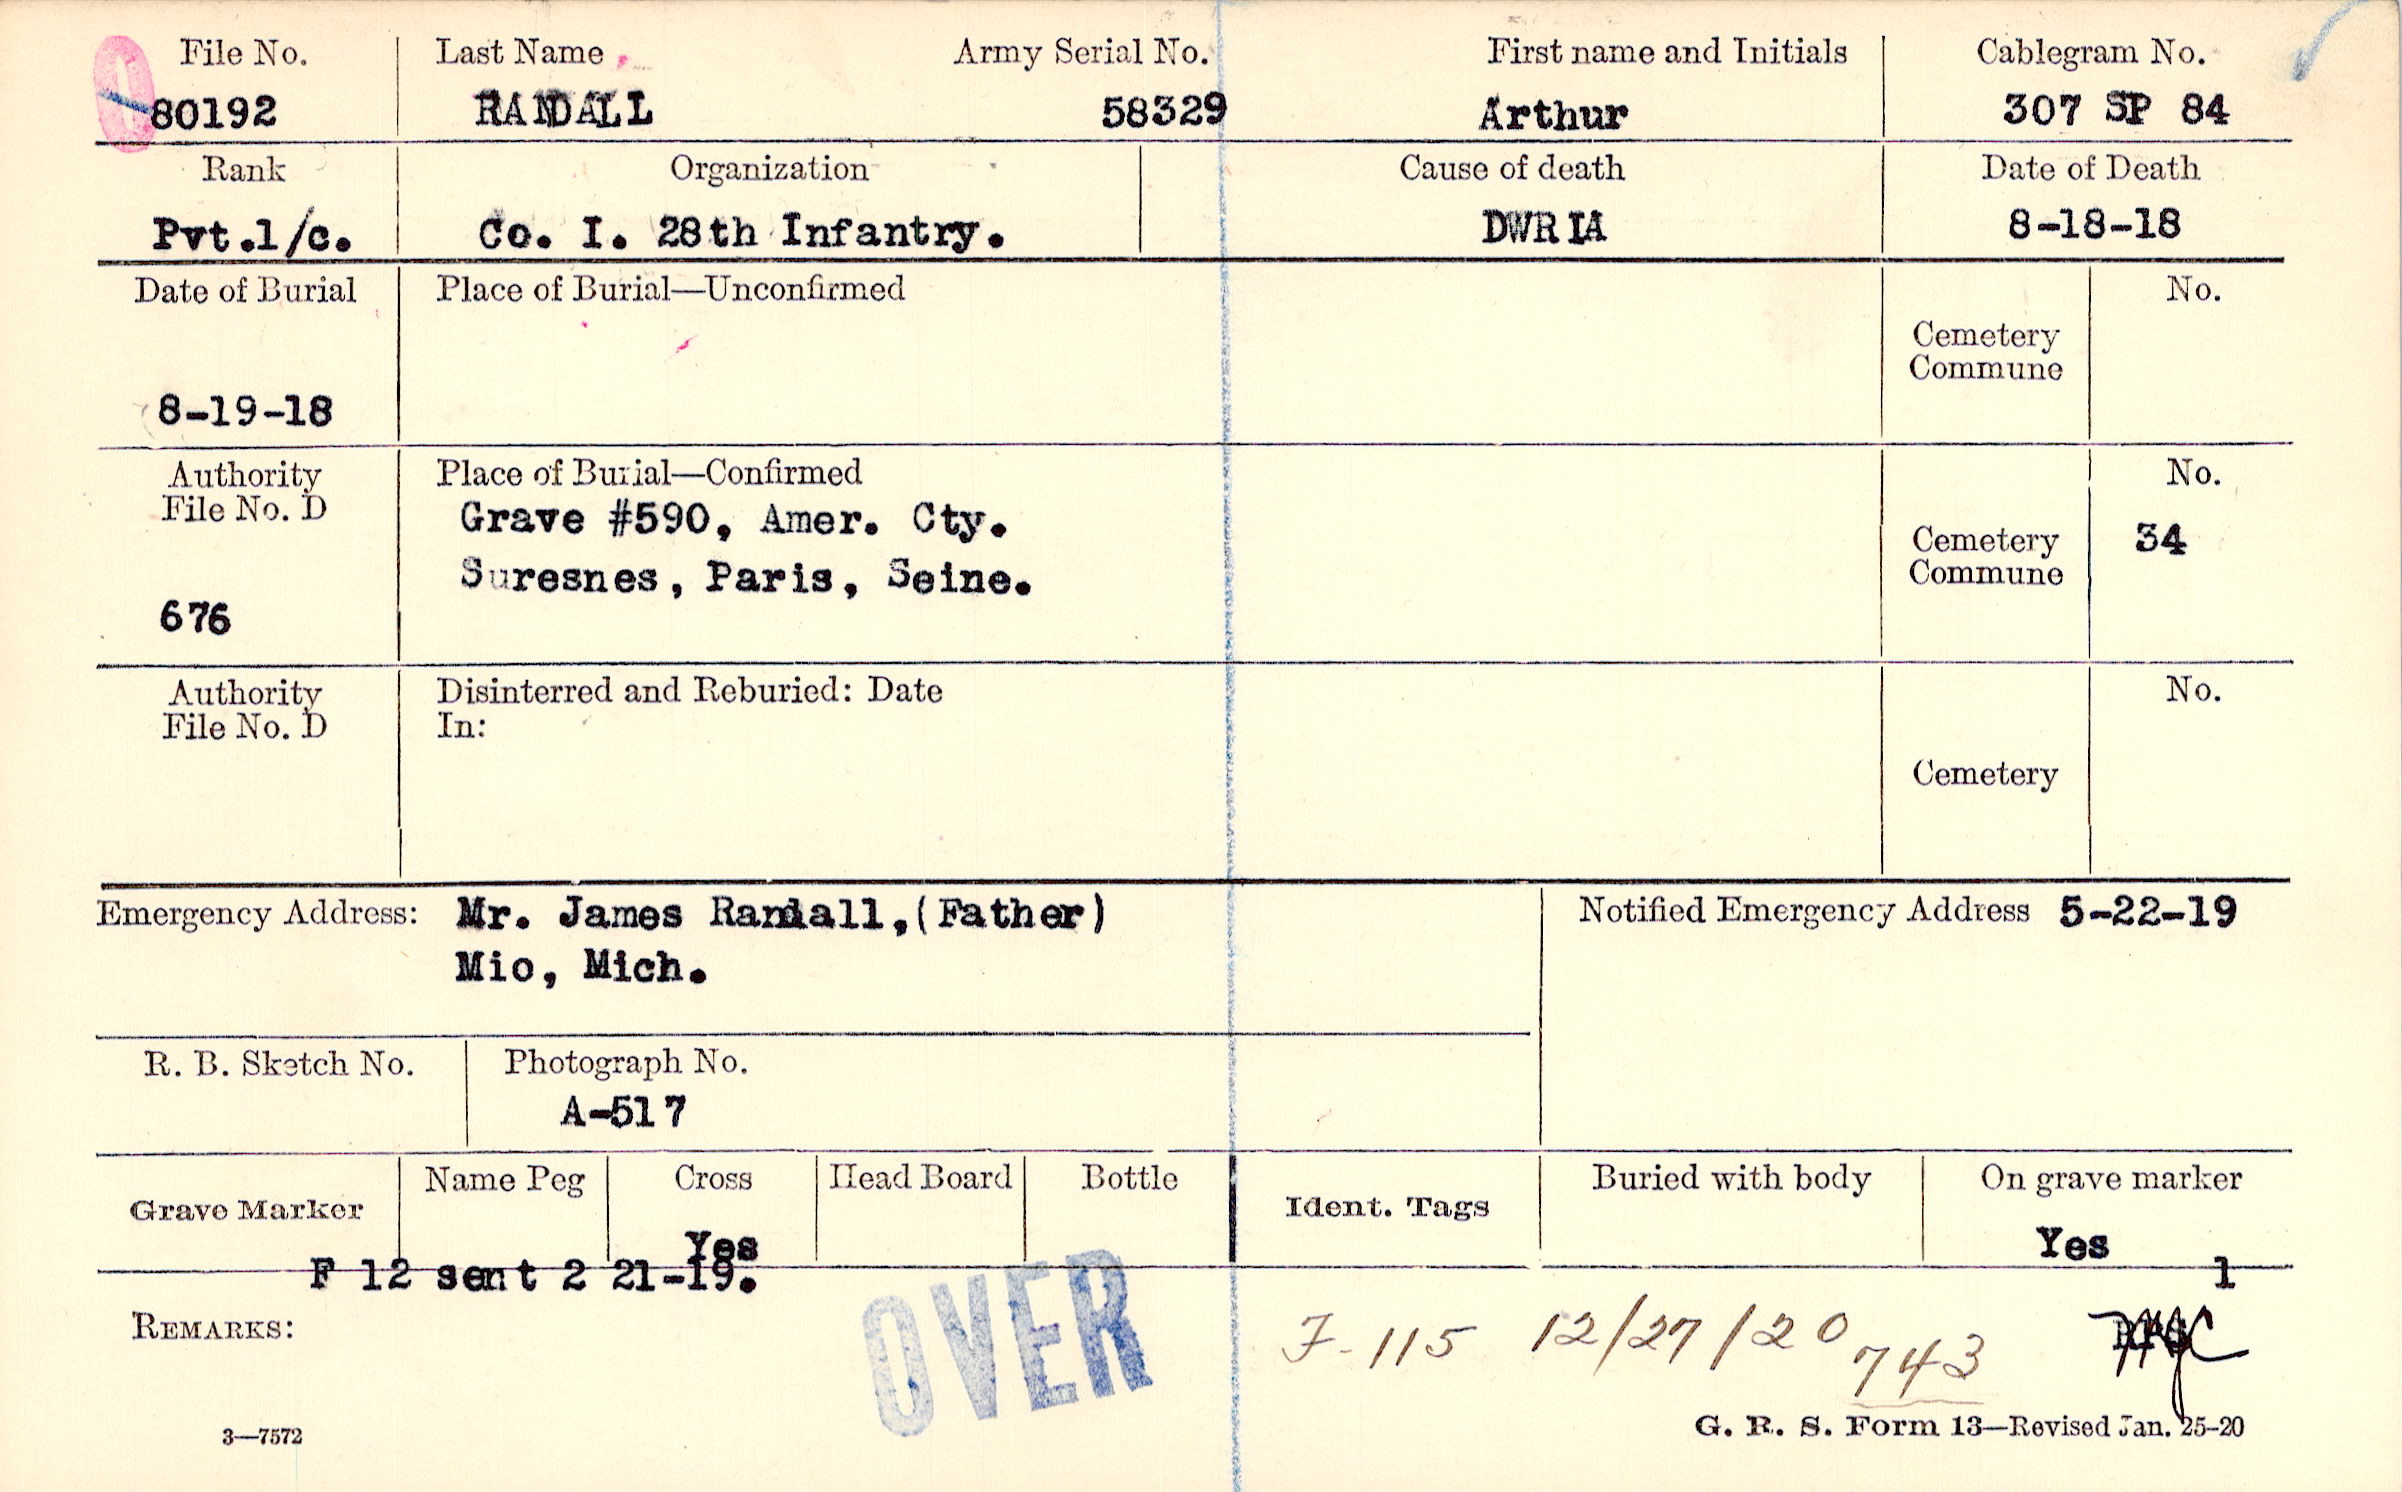 File No. Last Name Army Serial No. First name and Initials Cablegram No.
80192 RANDALL 58329 Arthur 307 SP 84
Rank Organization Cause of death Date of Death
Pvt.1/c. Co. I. 28th Infantry. DWRIA 8-18-18
Date of Burial Place of Burial—Unconfirmed No.
Cemetery
Commune
8-19-18
Authority Place of Burial—Confirmed No.
File No. D Grave #590, Amer. Cty. Cemetery 34
Suresnes, Paris, Seine. Commune
676
Authority Disinterred and Reburied: Date No.
File No. D In:
Cemetery
Emergency Address: Mr. James Randall,(Father) Notified Emergency Address 5-22-19
Mio, Mich.
R. B. Sketch No. Photograph No.
A-517
Grave Marker Name Peg Cross Head Board Bottle Ident. Tags Buried with body On grave marker
Yes Yes
F 12 sent 2 21-19. 1
REMARKS: OVER F-115 12/27/20 743
3—7572 G. R. S. Form 13—Revised Jan. 25-20